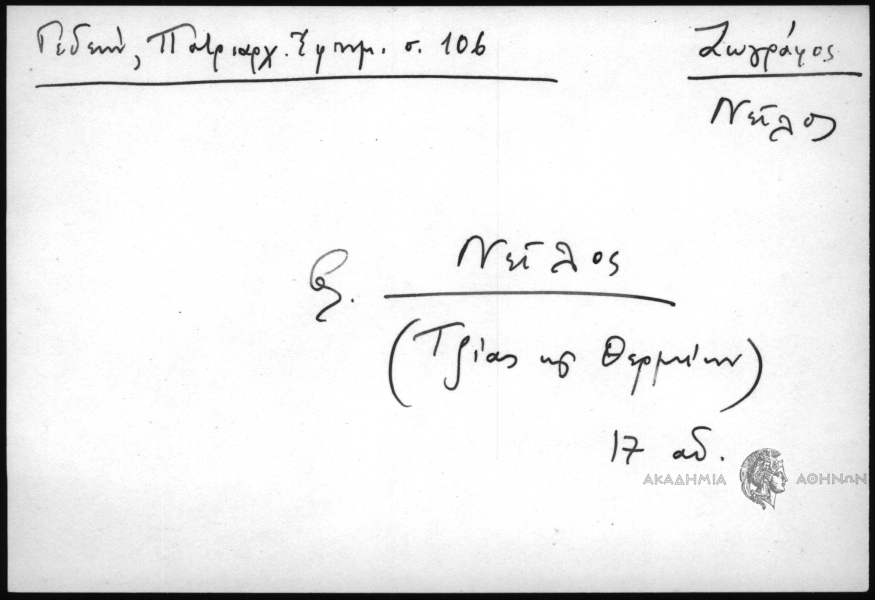 Γεδεών, Πατριαρχ. Ἐφημ. σ. 106
Ζωγράφος
Νεῖλος
Νεῖλος
(Τζίας κ Θερμιών)
17 αἰ.
ΑΚΑΔΗΜΙΑ ΑΘΗΝΩΝ